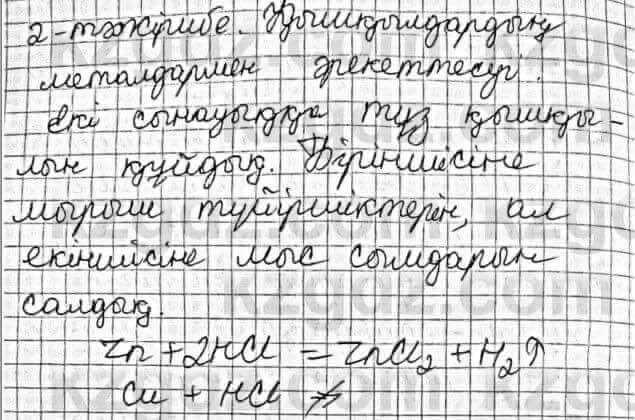 2-тәжірибе. Қышқылдардың
металдармен әрекеттесуі.
Екі сынауыққа тұз қышқы-
лын құйдық. Біріншісіне
мырыш түйіршіктерін, ал
екіншісіне мыс сымдарын
салдық.
Zn + 2HCl = ZnCl₂ + H₂↑
Cu + HCl ≠